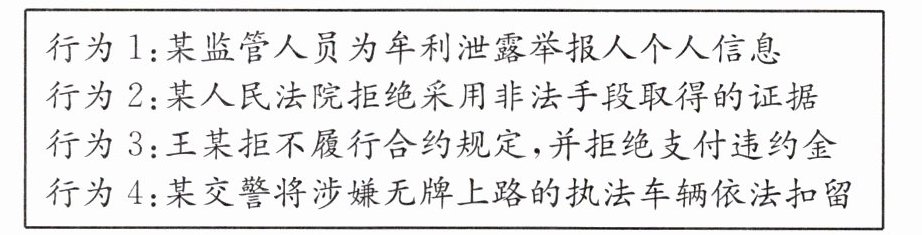 行为 1:某监管人员为牟利泄露举报人个人信息
行为 2:某人民法院拒绝采用非法手段取得的证据
行为 3:王某拒不履行合约规定,并拒绝支付违约金
行为 4:某交警将涉嫌无牌上路的执法车辆依法扣留